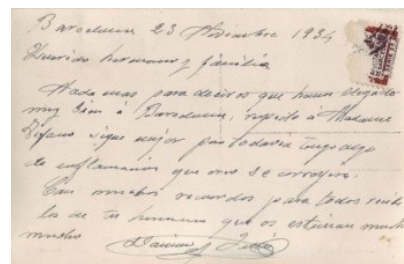 Barcelona 23 Diciembre 1934
Querido hermano y familia
Nada mas para deciros que hemos llegado
muy bien á Barcelona, respecto á Madame
sigue mejor pero todavia tengo algo
de inflamacion que no se
Con muchos recuerdos para todos
los de tu hermano que os estiman mucho
mucho